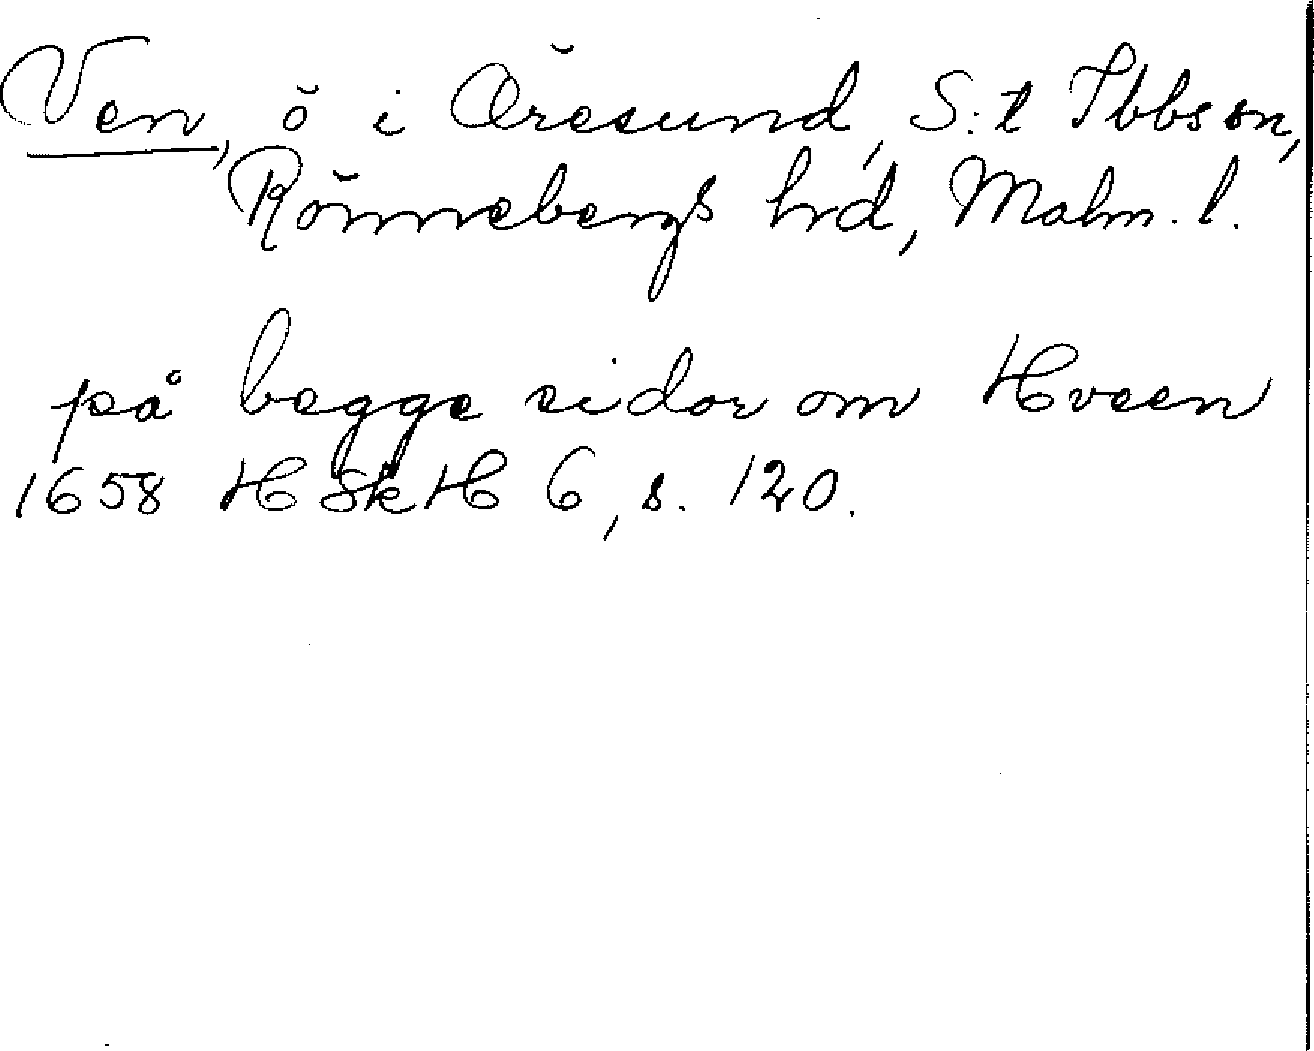 Ven, ö i Öresund, S:t Ibbs sn,
Rönnebergs hrd, Malm. l.
på begge sidor om Hveen
1658 HSkH 6, s. 120.